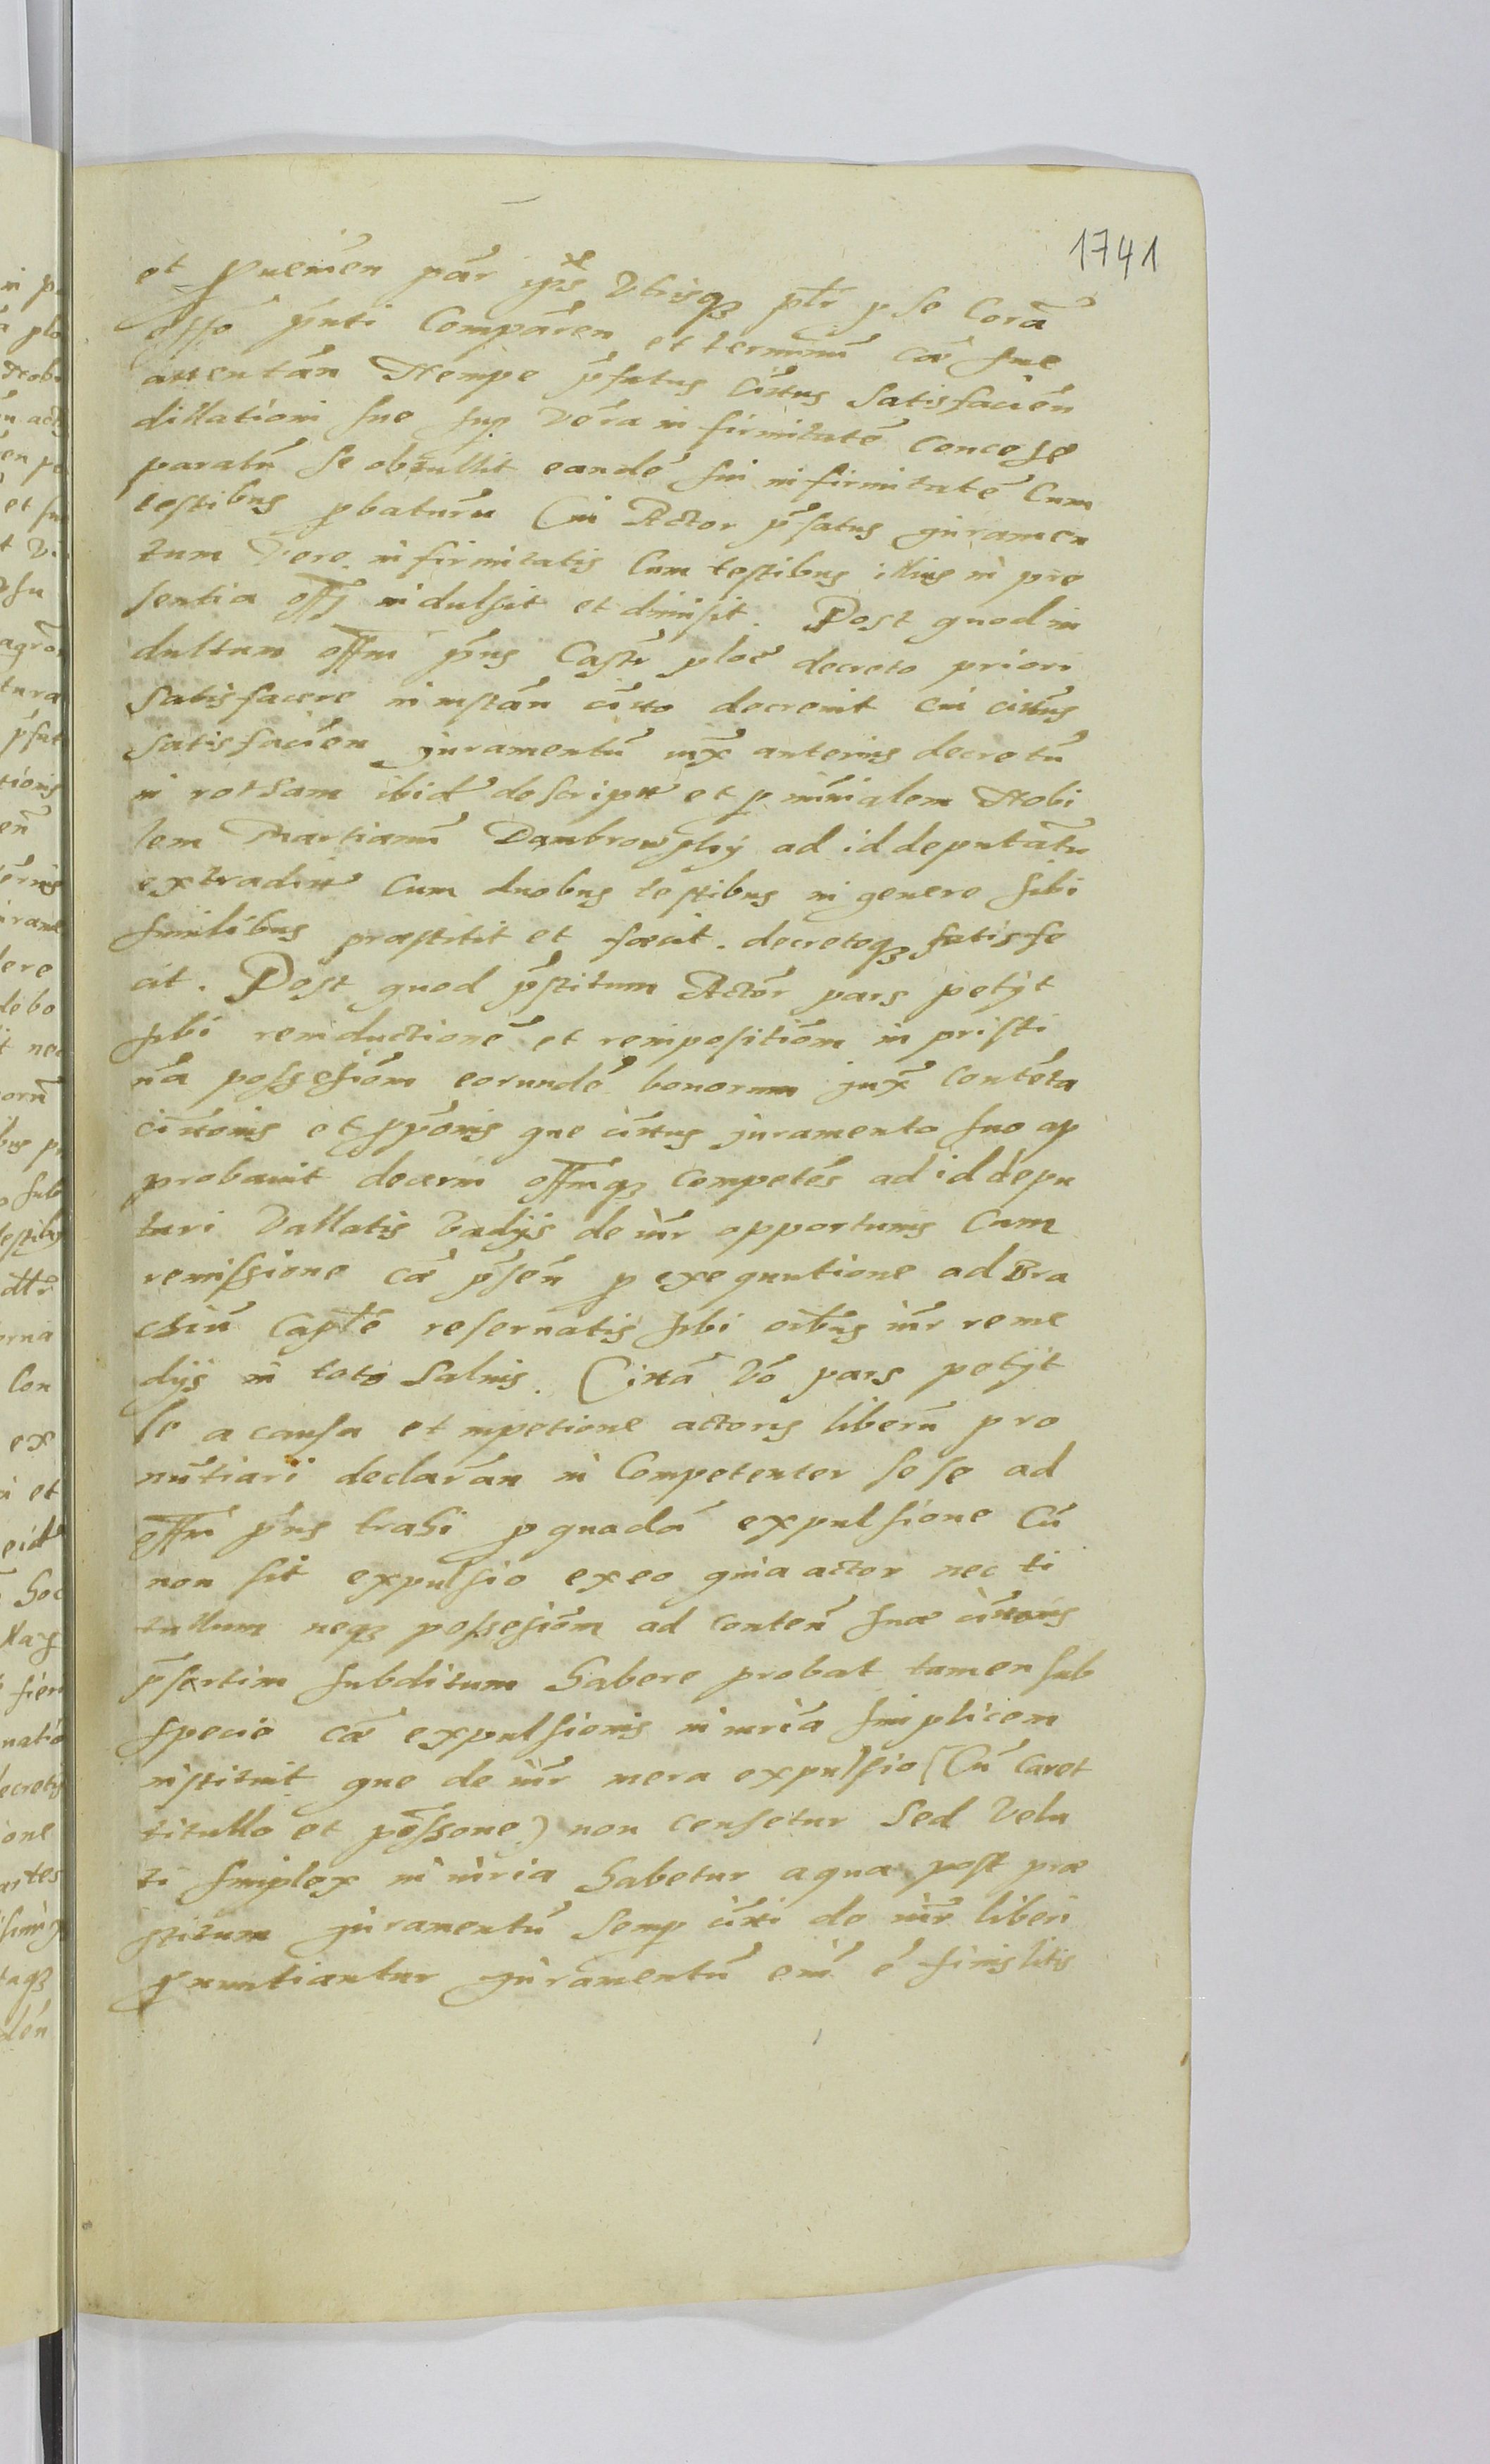 1741
et pueniẽn pãr ip̃is Vtrisq3 ptĩr p se Corã
offo p̃nti Comparẽn et terminũ cæ sue
attentãn Nempe p̃fatus Citũs Satisfaciẽn
dillationi sue sup Vera in firmitatẽ concesse
paratũ se obtullit eandẽ sui in firmitatẽ Cum
testibus pbaturũ Cui Actor p̃fatus juramen
tum Vere in firmitatis Cum testibus illius in pre
sentia offÿ indulsit et dimisit. Post quod in
dultum offm̃ p̃ns Castr̃ ploc̃ decreto priori
Satisfacere in instãn citto decrevit Cui cittus
Satisfaciẽn juramentũ iux̃ anterius decretũ
in rotham ibid̃ descriptt et p min̄ialem Nobi
lem Martianũ Dambrowsky ad id deputatũ
extraditt Cum duobus testibus in genere sibi
similibus præstitit et fecit. decretoq3 satisfe
cit. Post quod p̃stitum Actor̃ pars petÿt
sibi reinductionẽ et reimpositiom̃ in pristi
nã possesiom̃ eorundẽ bonorum jux̃ contẽta
cittonis et ppõnis que cittus juramento suo ap
probauit decerni offmq3 competẽs ad id depu
tari Vallatis Vadÿs de iũr opportunis Cum
remissione cæ p̃sẽn p exequutione ad Bra
chiũ Capt̃ẽ reseruatis sibi oĩbus iũr reme
dÿs in toto Saluis. Cittã Võ pars petÿt
se a causa et inpetione actoris liberũ pro
nũtiari declarãn in Competenter se se ad
offm̃ p̃ns trahi p quadã expulsione Cũ
non sit expulsio exeo quia actor nec ti
tullum neq3 possesiom̃ ad contẽn suæ cittonis
p̃sertim subditum habere probat tamen sub
specie cæ expulsionis in iuriã simplicem
instituit que de iũr mera expulsio (Cũ Caret
titullo et possõne) non censetur Sed Velu
ti simplex in iũria habetur a qua post præ
stitum juramentũ semp citti de iũr liberi
pnuntiantur juramentũ enĩ ẽ finis litis